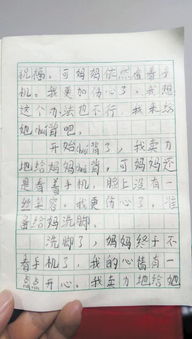 机摇。可妈妈依然看着手
机。我更加伤心了。我想
这个办法也不行，我来给
她捶背吧。
开始捶背了，我卖力
地给妈妈捶背，可妈妈还
是看着手机，脸上没有一
丝笑容。我更伤心了，准
备给妈洗脚。
洗脚了，妈妈终于不
看手机了，我的心里有一
点点开心。我卖力地给她